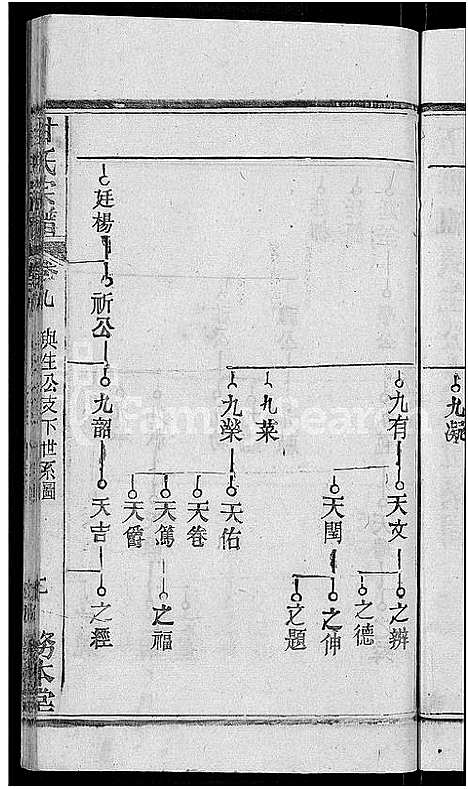 九凝
九有
天文
之辨
之德
天閏
之伸
之題
九菜
九榮
天佑
天卷
天篤
之福
天爵
廷楊
祈公
九韶
天吉
之經
甘氏宗譜
卷九
與生公支下世系圖
務本堂
FamilySearch